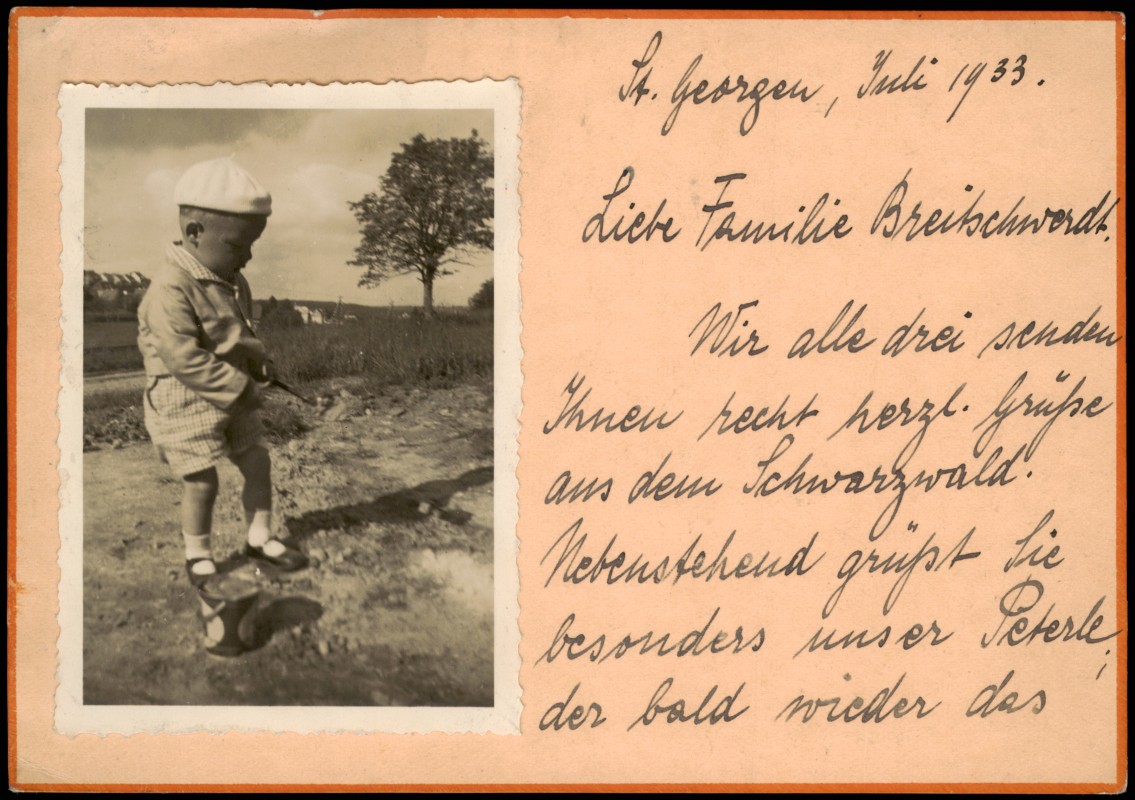 St. Georgen, Juli 1933.
Liebe Familie Breitschwerdt.
Wir alle drei senden
Ihnen recht herzl. Grüße
aus dem Schwarzwald.
Nebenstehend grüßt Sie
besonders unser Peterle,
der bald wieder das